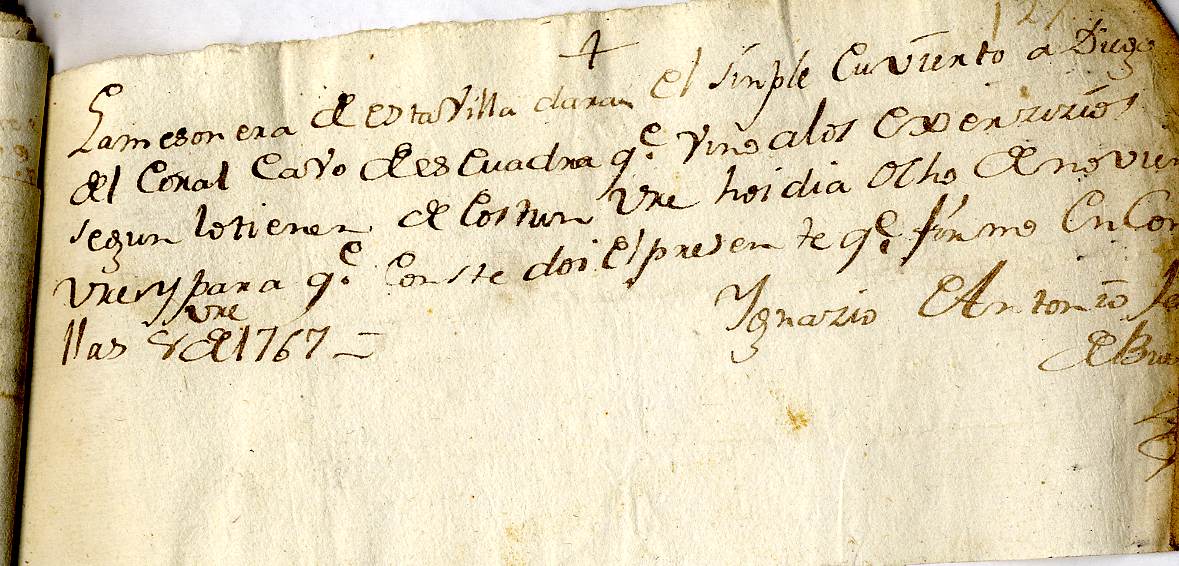 127
La mesonera de esta Villa daran el sinple Cuviento a Diego
del Coral Cavo de escuadra q.e vino a los exerzizios
segun lo tienen de Costunvre hoi dia Ocho de novien
vre y para q.e Conste doi el presente q.e firmo En Con
llas 8vre de 1767
Ygnazio Antonio
de Bue